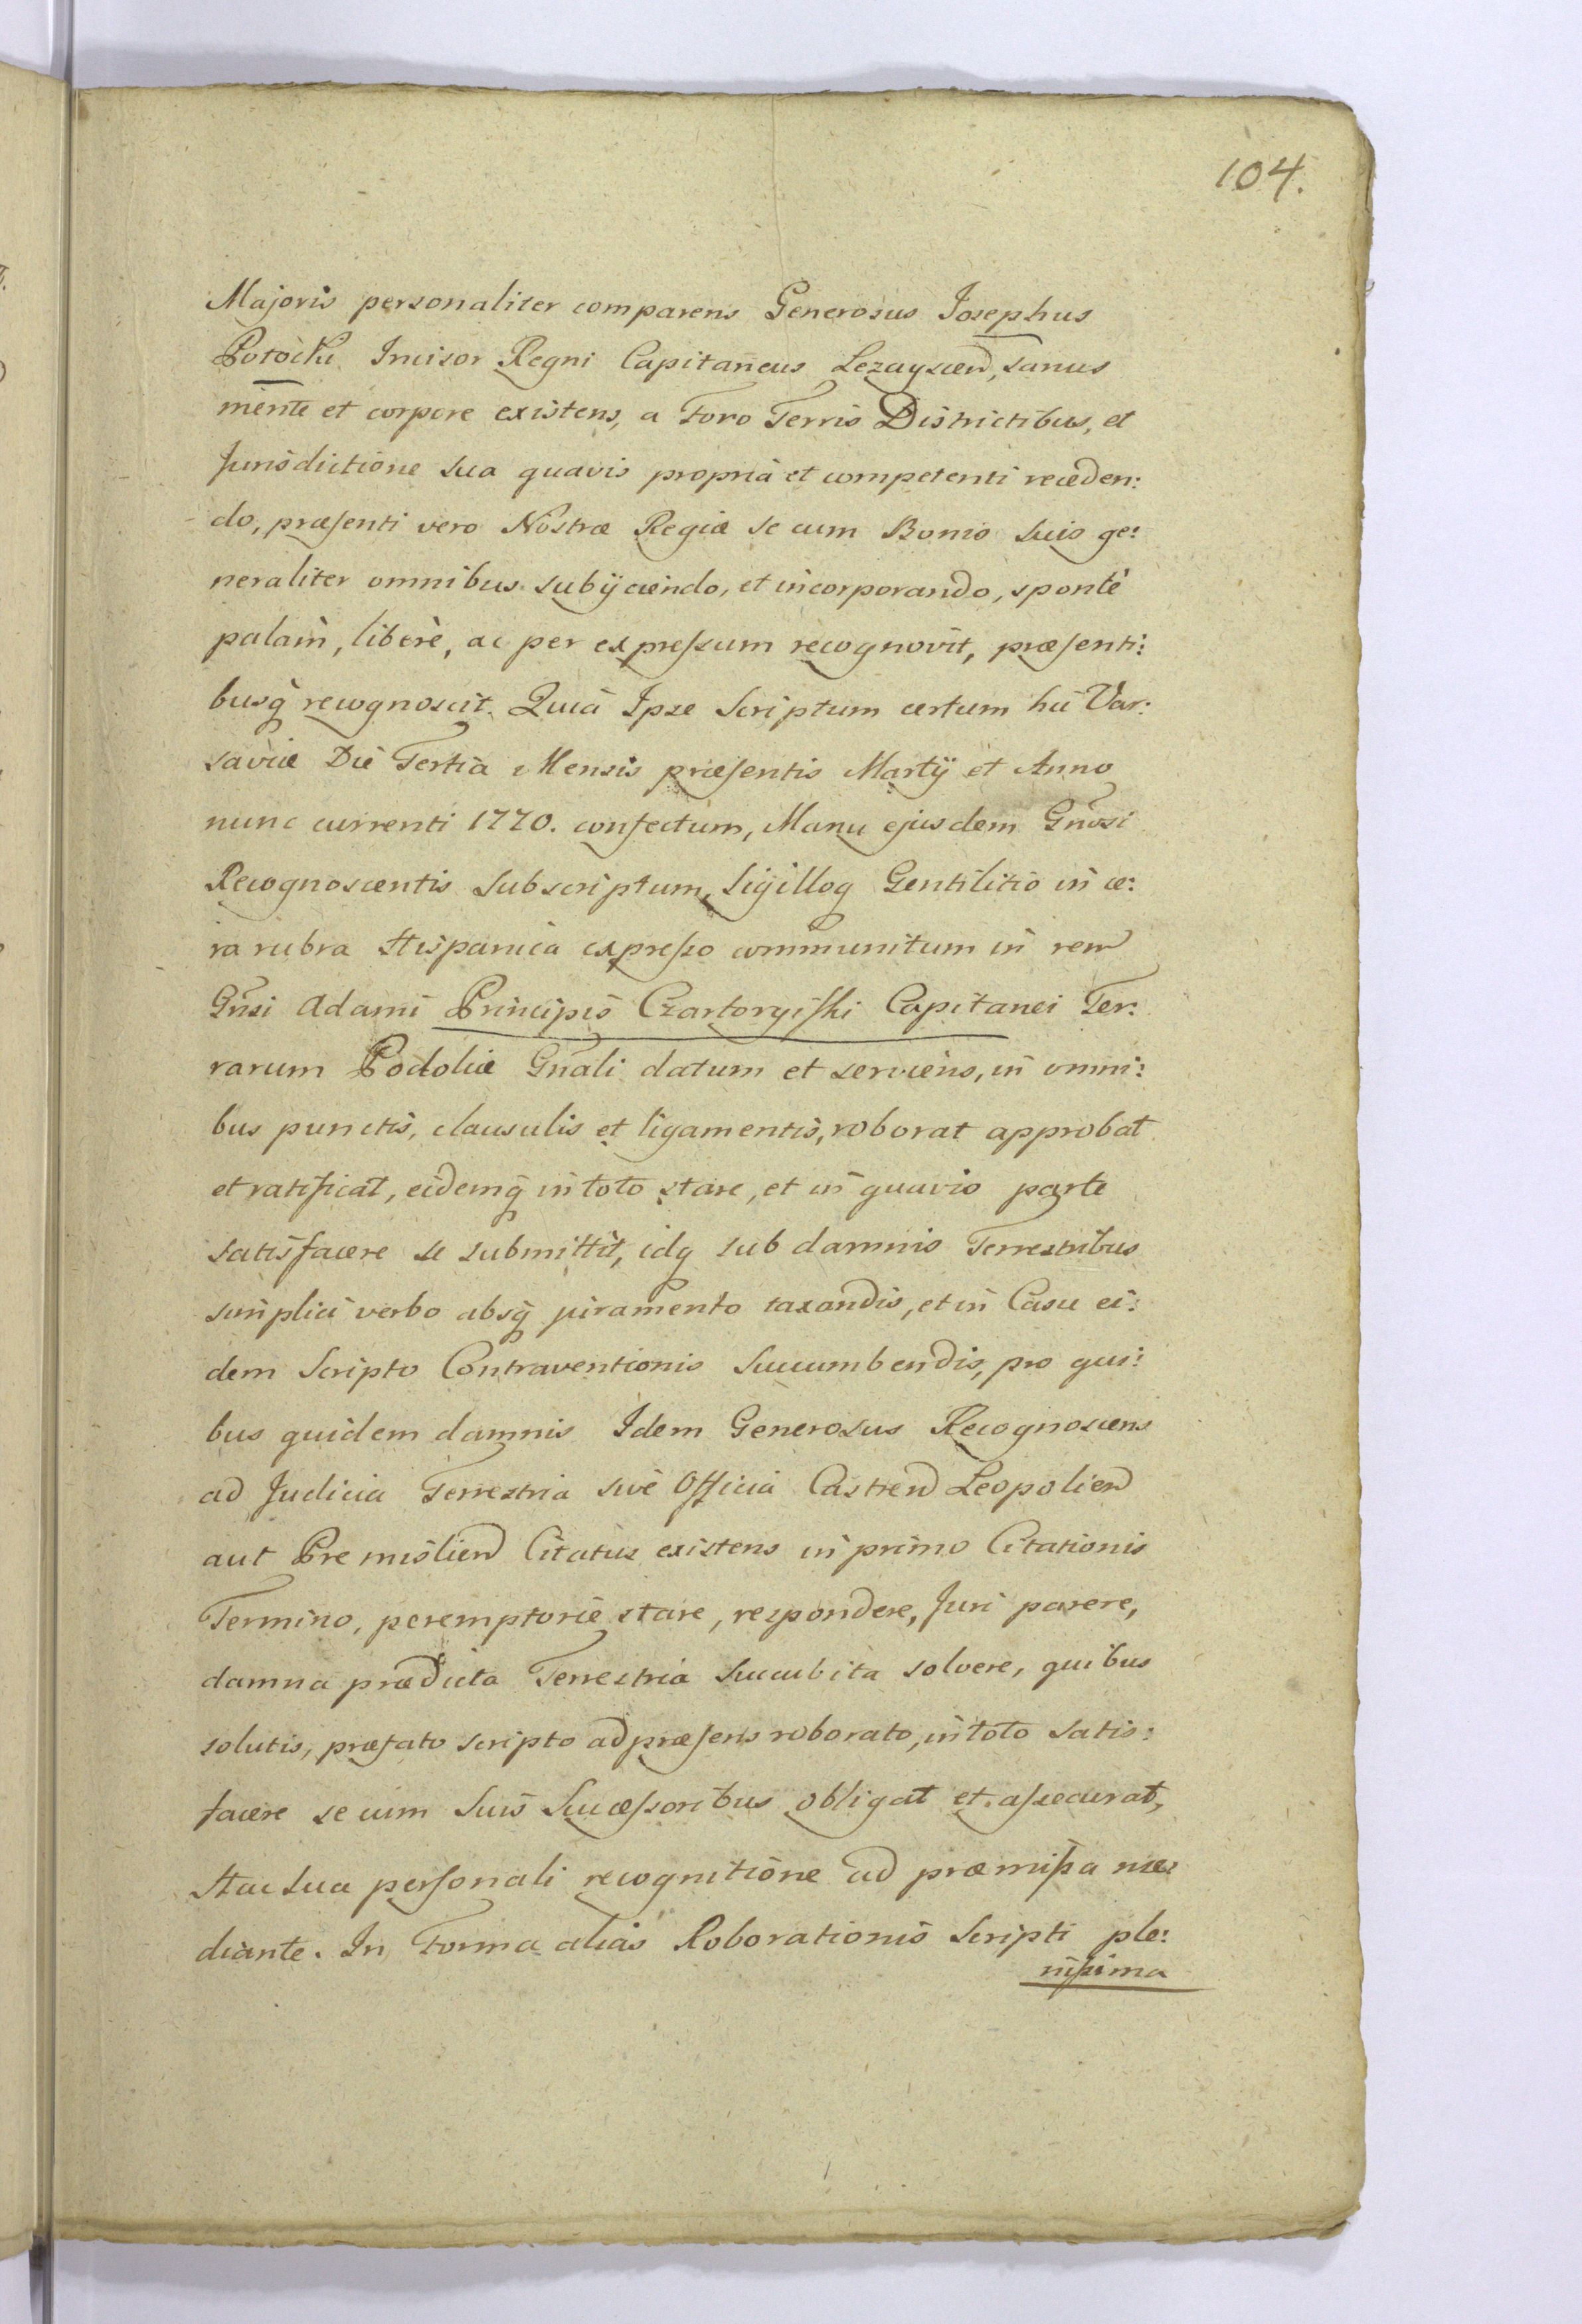 104.
Majoris personaliter comparens Generosus Josephus
Potocki Incisor Regni Capitaneus Lezayscen, sanus
mente et corpore existens, a Foro Terris Districtibus, et
Jurisdictione sua quavis propria et competenti receden:
do, præsenti vero Nostræ Regiæ se cum Bonis suis ge:
neraliter omnibus subijciendo, et incorporando, sponte
palam, libere, ac per expressum recognovit, præsenti:
busq recognoscit. Quia Ipse Scriptum certum hic Var:
saviæ Die Tertia Mensis præsentis Martij et Anno
nunc currenti 1770. confectum, Manu ejusdem Gnosi
Recognoscentis subscriptum, Sigilloq Gentilitio in ce:
ra rubra Hispanica expresso communitum in rem
Gnsi Adami Principis Czartoryiski Capitanei Ter:
rarum Podoliæ Gnali datum et serviens, in omni:
bus punctis, clausulis et ligamentis, roborat approbat
et ratificat, eidemq in toto stare, et in quavis parte
satisfacere se submittit, idq sub damnis Terrestribus
simplici verbo absq juramento taxandis, et in Casu ei:
dem Scripto Contraventionis succumbendis, pro qui:
bus quidem damnis Idem Generosus Recognoscens
ad Judicia Terrestria sive Officia Castren Leopolien
aut Premislien Citatus existens in primo Citationis
Termino, peremptorie stare, respondere, Juri parere,
damna prædicta Terrestria succubita solvere, quibus
solutis, præfato scripto ad præsens roborato, in toto satis:
facere se cum suis Successoribus obligat et assecurat,
Hac sua personali recognitione ad præmissa me:
diante. In Forma alias Roborationis Scripti ple:
nissima